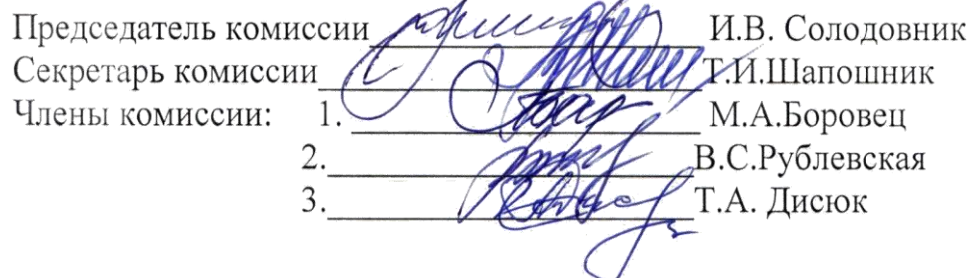 Председатель комиссии И.В. Солодовник
Секретарь комиссии Т.И.Шапошник
Члены комиссии: 1. М.А.Боровец
2. В.С.Рублевская
3. Т.А. Дисюк